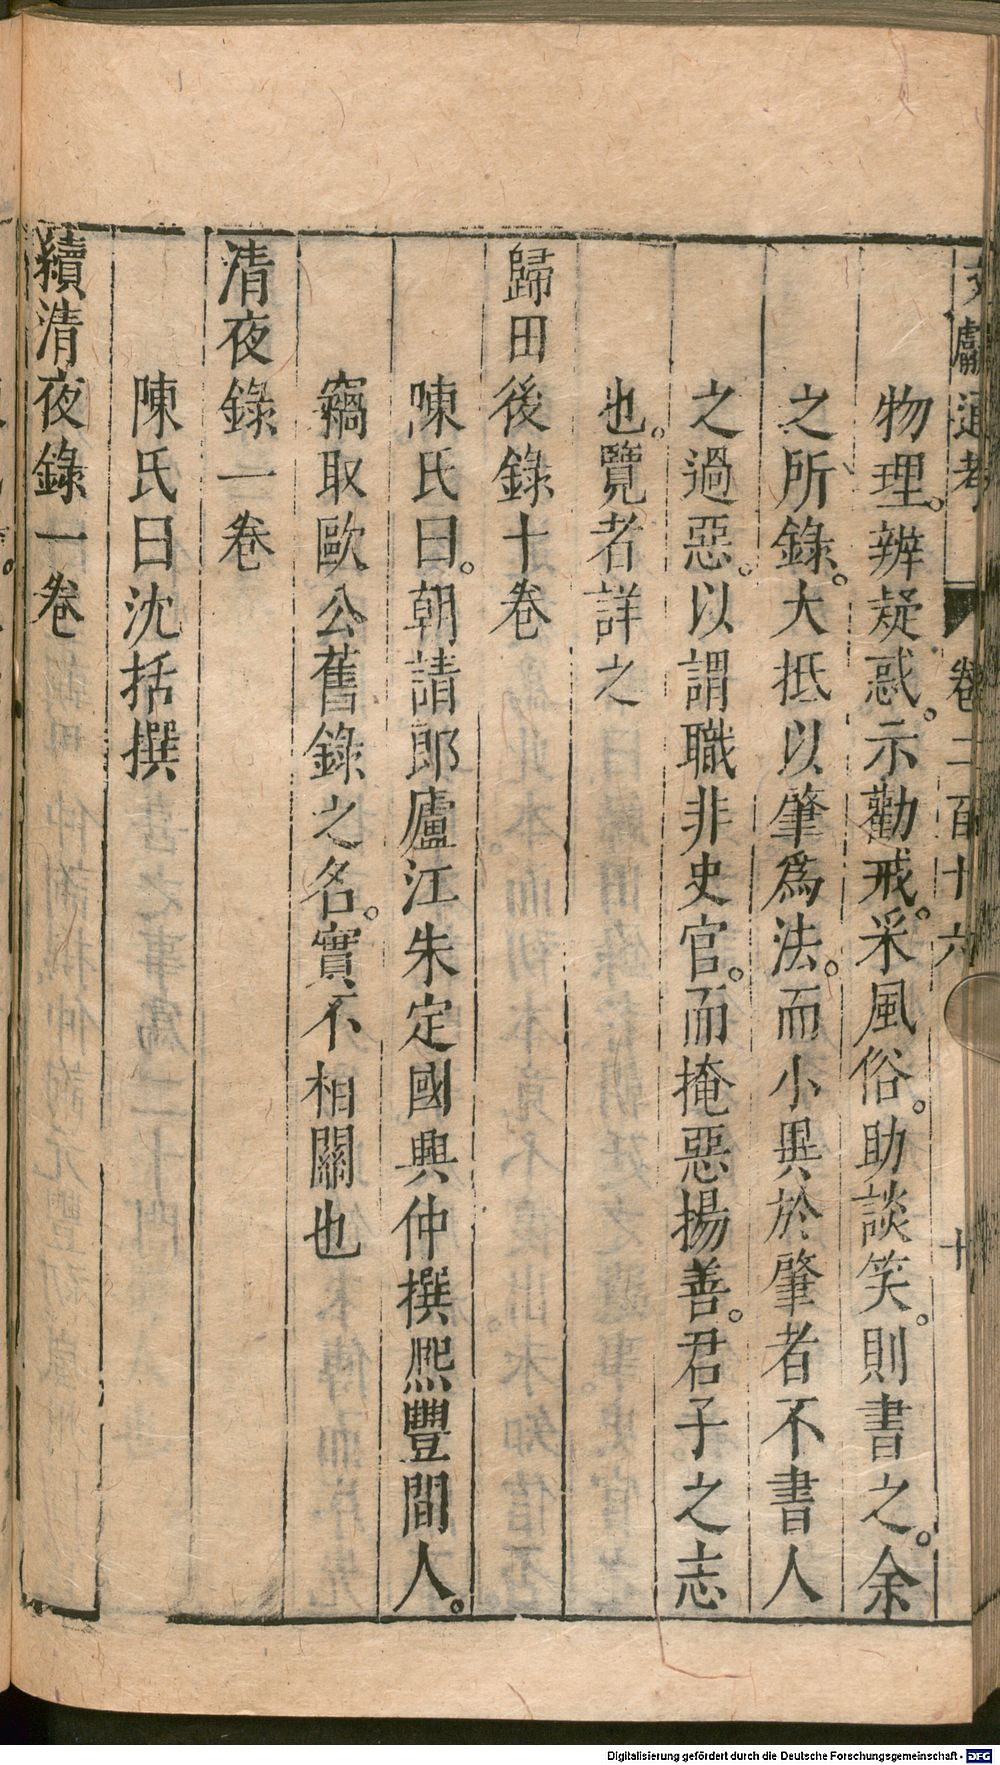 文獻通考 卷二百十六 十
物理。辨疑惑。示勸戒。采風俗。助談笑。則書之。余
之所錄。大抵以肇爲法。而小異於肇者不書人
之過惡。以謂職非史官。而掩惡揚善。君子之志
也。覽者詳之
歸田後錄十卷
陳氏曰。朝請郎廬江朱定國興仲撰熈豐間人。
竊取歐公舊錄之名。實不相關也
清夜錄一卷
陳氏曰沈括撰
續清夜錄一卷
Digitalisierung gefördert durch die Deutsche Forschungsgemeinschaft - DFG